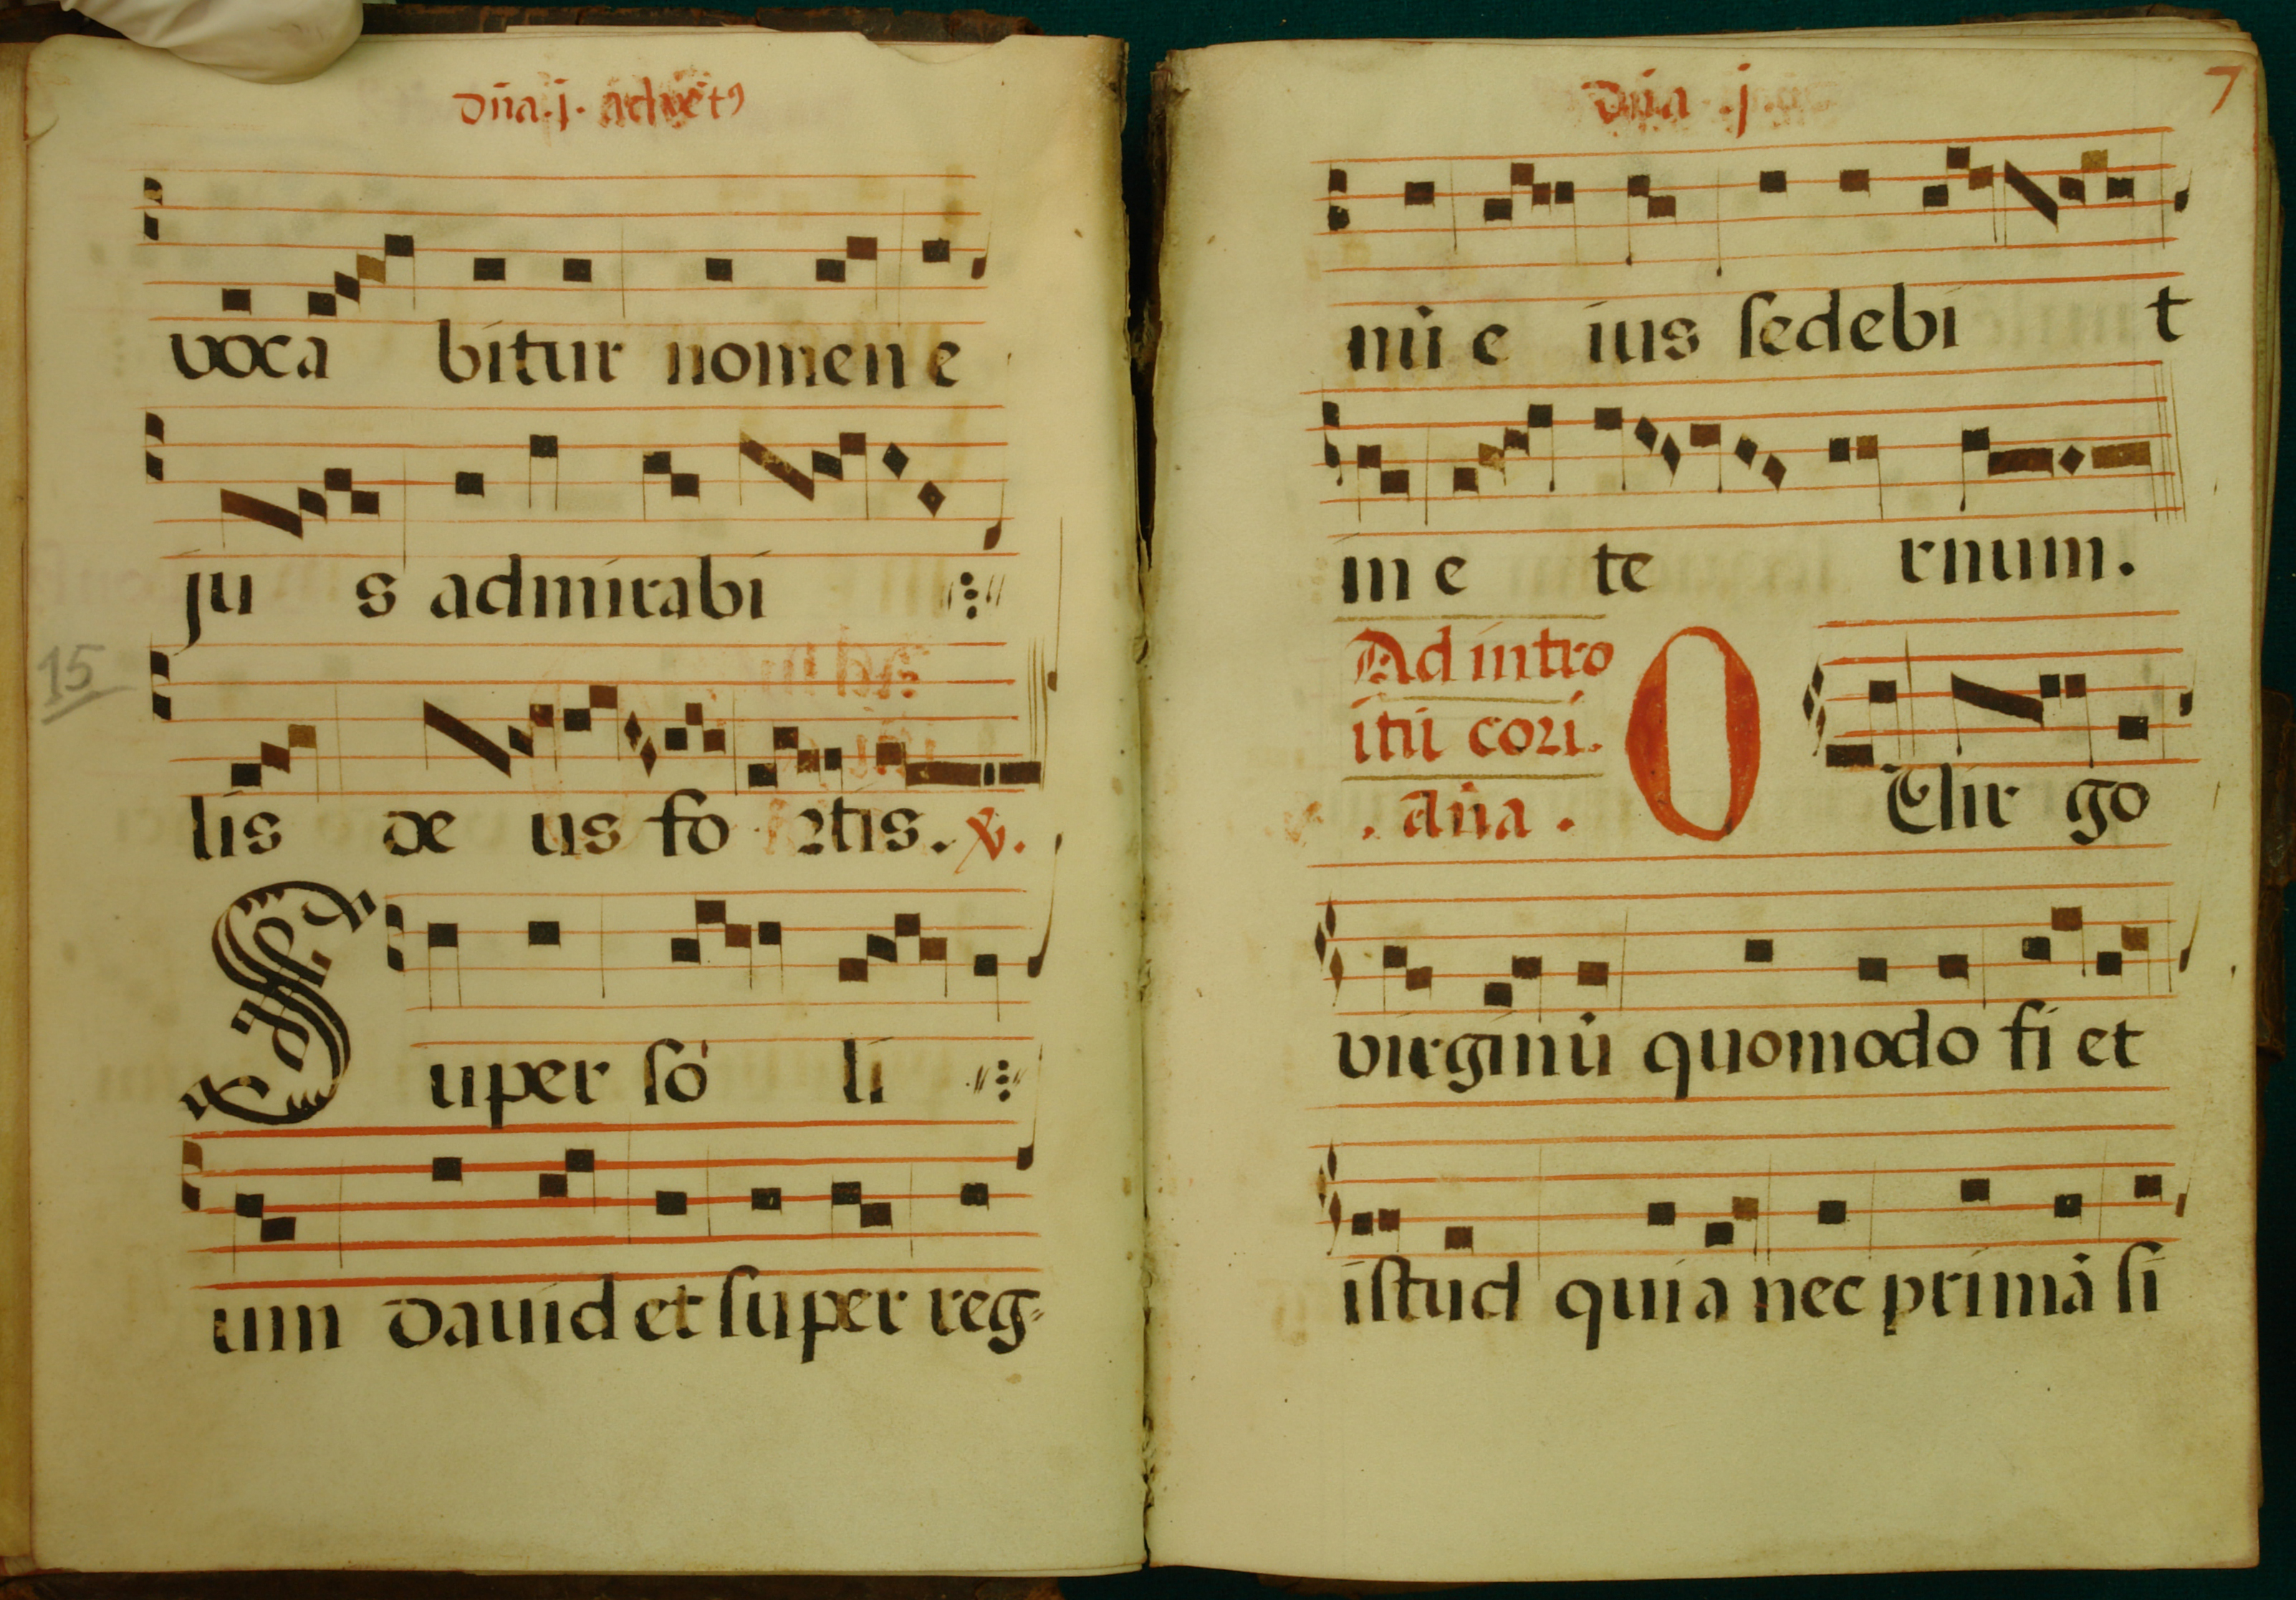 dn̄a . j . advēt⁹
voca bitur nomen e
ju s admirabi
15
lis de us fo rtis. ℣.
Super so li
um david et super reg-
dn̄a . j .
7
nū e ius sedebi t
in e te rnum.
Ad intro
itū cori.
. dn̄a .
O Vir go
virginū quomodo fi et
istud quia nec primā si